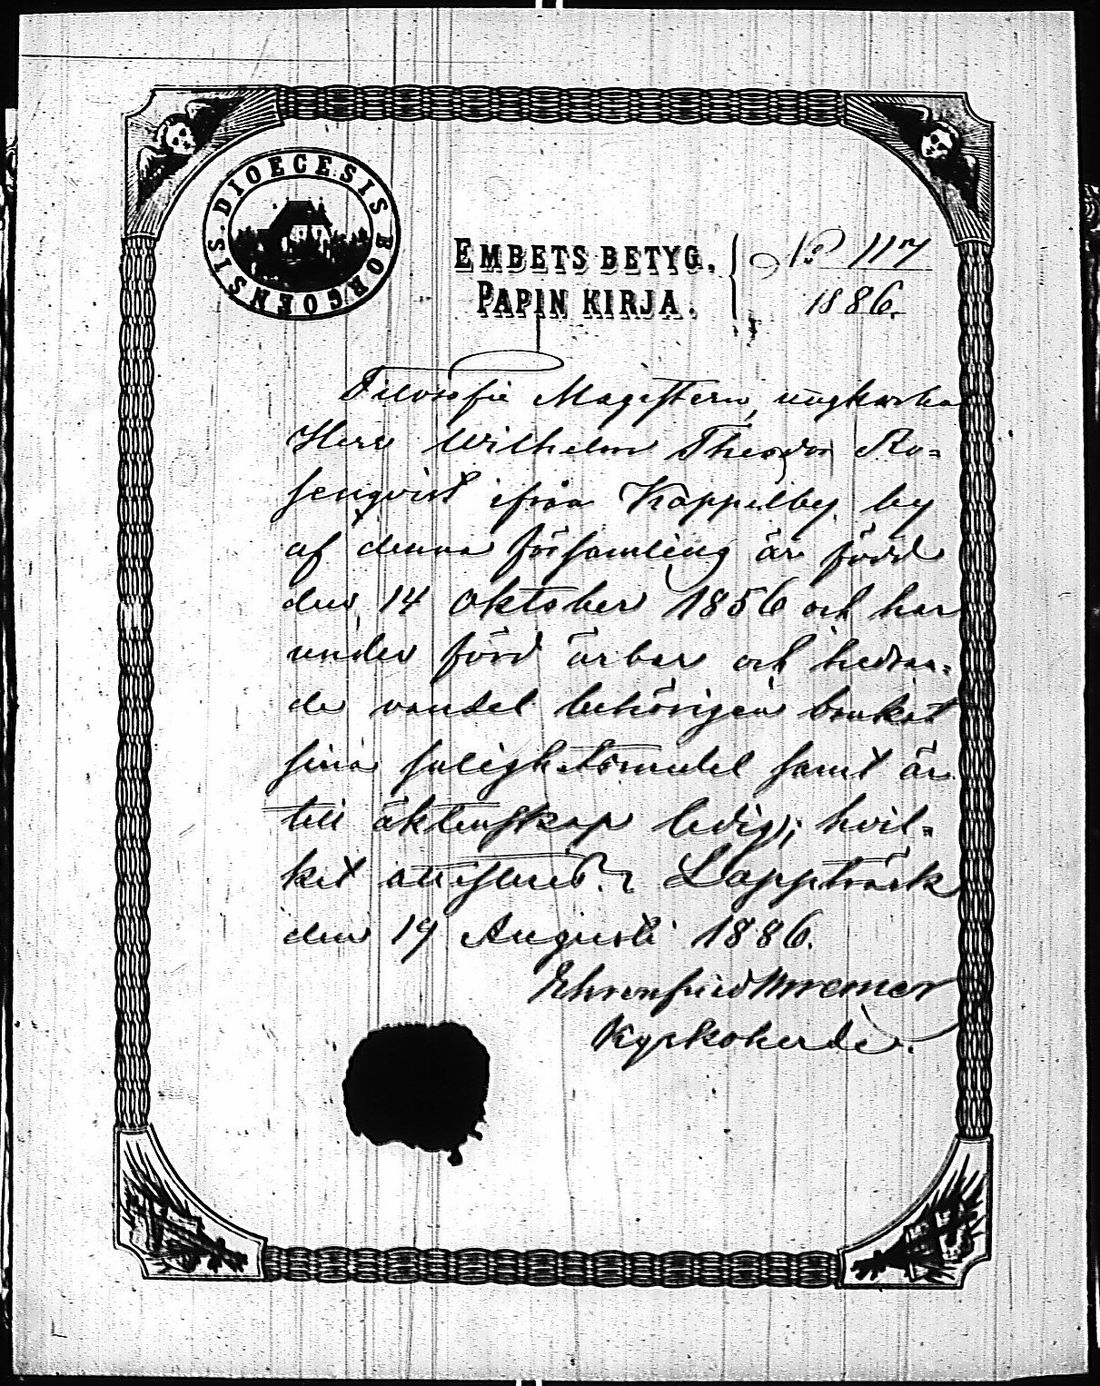 DIOECESIS BORGOENSIS.
EMBETS BETYG.
PAPIN KIRJA.
No 117
1886.
Filosofie Magistern, ungkarlen
Herr Wilhelm Theodor Ro=
senqvist ifrån Kappelby by
af denna församling är född
den 14 Oktober 1856 och har
under förd ärbar och hedran=
de vandel behörigen brukat
sina salighetsmedel samt är
till äktenskap ledig; hvil=
ket attesteras. Lappträsk
den 19 Augusti 1886.
Ehrenfried Wremer
Kyrkoherde.